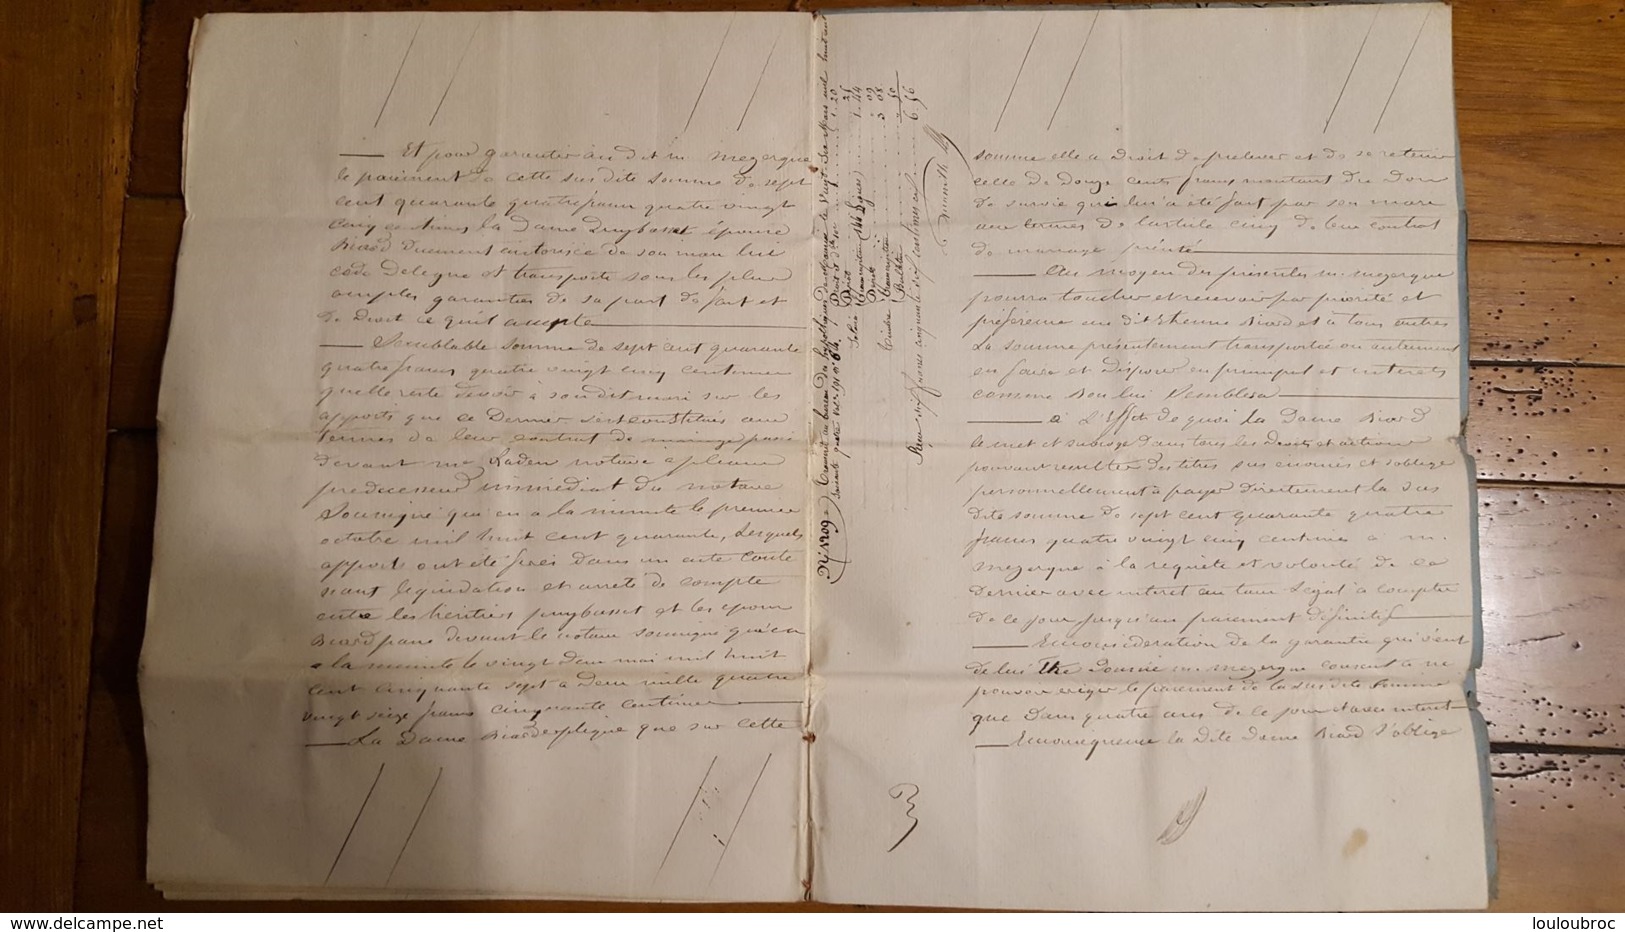 Et pour garantir au dit m. mezergue
le paiement de cette sus dite somme de sept
cent quarante quatre francs quatre vingt
cinq centimes la dame Puybasset épouse
Biard Duement autorisée de son mari lui
cede Delegue et transporte sous les plus
amples garanties de sa part de fait et
de Droit ce qu'il accepte
Semblable somme de sept cent quarante
quatre francs quatre vingt cinq centimes
quelle reste devoir à son dit mari sur les
apports que ce Dernier s'est constitués aux
termes de leur contrat de mariage passé
devant me notaire a
predecesseur immédiat du notaire
Soussigné qui en a la minute le premier
octobre mil huit cent quarante, lesquels
apports ont été fixés dans un acte conte
nant liquidation et arrêté de compte
entre les héritiers puybasset et les époux
Biard passé devant le notaire soussigné qui en
a la minute le vingt deux mai mil huit
cent cinquante sept a Deux mille quatre
vingt seize francs cinquante centimes
La Dame Biard explique que sur cette
N° 1209 Transcrit au bureau des hypothèques de le vingt six Mars mil huit cent
soixante quatre Vol. 191 n° 64
1. 20
Dépôt 25
Salaire Transcription 1. 44
09
Timbre Transcription 3 08
Bulletin 50
6. 56
Reçu six francs cinquante six centimes
somme elle a Droit de prelever et de se retenir
celle de Douze cents francs montant du Don
de survie qui lui a été fait par son mari
aux termes de l'article cinq de leur contrat
de mariage précité
Au moyen des présentes m. mezergue
pourra toucher et recevoir par priorité et
préférence au dit Etienne Biard et à tous autres
La somme présentement transportée ou autrement
en faire et disposer en principal et interets
comme Bon lui Semblera
à L'Effet de quoi La Dame Biard
le met et subroge dans tous les droits et actions
pouvant resulter des titres sus énoncés et s'oblige
personnellement à payer directement la sus
dite somme de sept cent quarante quatre
francs quatre vingt cinq centimes à m.
mezergue à la requête et volonté de ce
Dernier avec interet au taux legal à compter
de ce jour jusqu'au paiement définitif
En considération de la garantie qui vient
de lui être Donnée m. mezergue consent à ne
pouvoir exiger le paiement de la sus dite somme
que Dans quatre ans de ce jour et avec interet
En conséquence la Dite Dame Biard s'oblige
delcampe.net
louloubroc